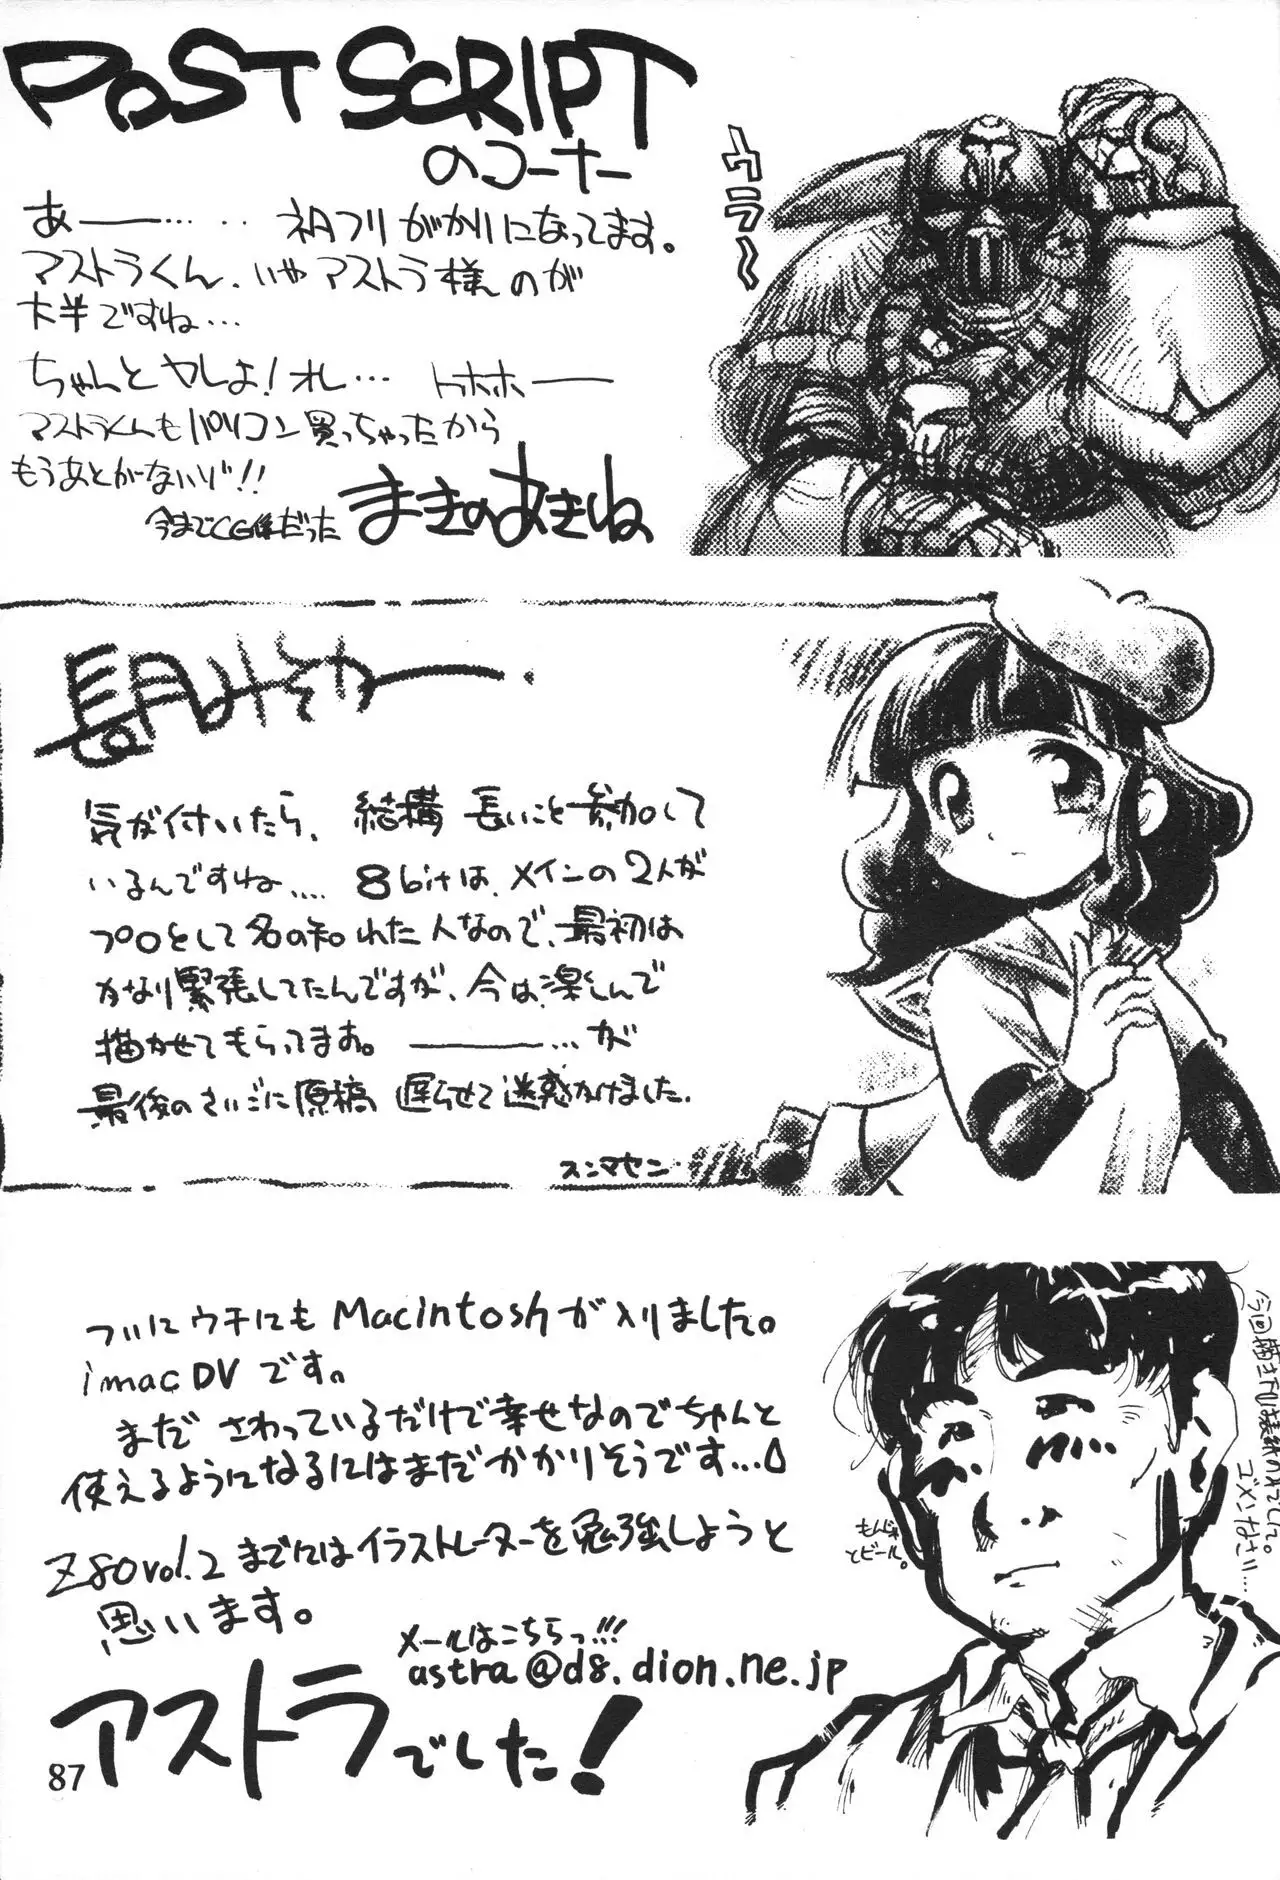 POST SCRIPT
のコーナー
あー……‥ ネコフリがかりになってます。
マストラくん、いやアストラ様のが
大半ですね…
ちゃんとヤレよ!オレ… トホホー
マストラくんもパソコン買っちゃったから
もうあとがないゾ!!
今までCG係だった
まきのあきひね
ウラ〜
長月みそか
気が付いたら、結構長いこと参加して
いるんですね…. 8bitは、メインの2人が
プロとして名の知れた人なので、最初は
かなり緊張してたんですが、今は楽しんで
描かせてもらってます。――…が
最後のさいごに原稿遅らせて迷惑かけました.
スンマセン
ついにウチにもMacintoshが入りました。
imac DVです。
まださわっているだけで幸せなのでちゃんと
使えるようになるにはまだかかりそうです…
Z80vol.2までにはイラストレーターを勉強しようと
思います。
メールはこちらっ!!!
astra@d8.dion.ne.jp
アストラでした!
もんじゃ
とビール。
ゴメンなさい…
87